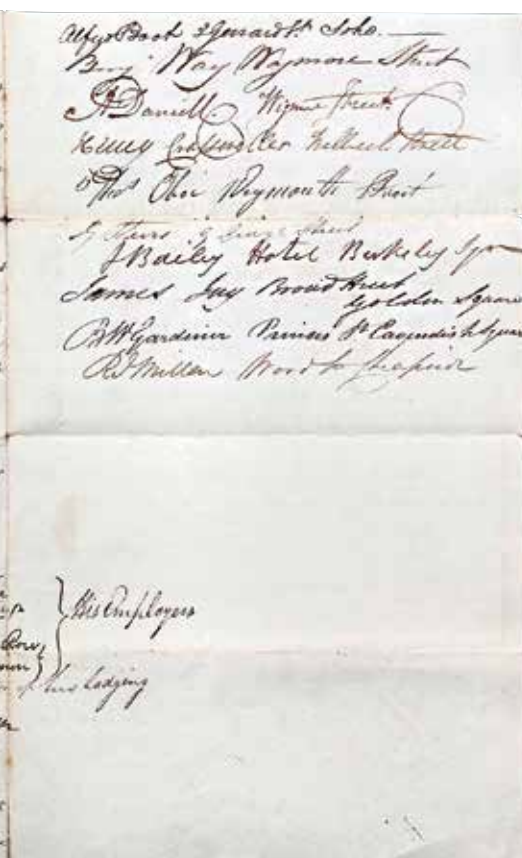 Alfred Booth 2 Gerrard St. Soho.
Benj. Way Waymore Street
Daniell Wigmore Street
Henry Welbeck Street
Thos Weymouth
George Street
J Bailey Hotel Berkeley Sqr
James Jay Broad Street
Golden Square
B W Gardiner Princes St Cavendish Square
R J Miller Wood St Cheapside
His Employers
Row
his Lodging